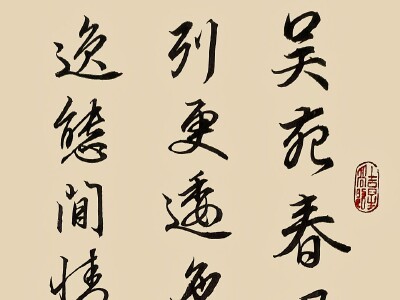 吴苑春
列更逶
逸態閒情